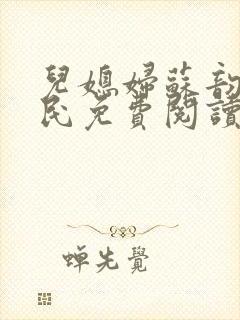 兒媳婦蘇韵
民免費閱讀
蟬先覺